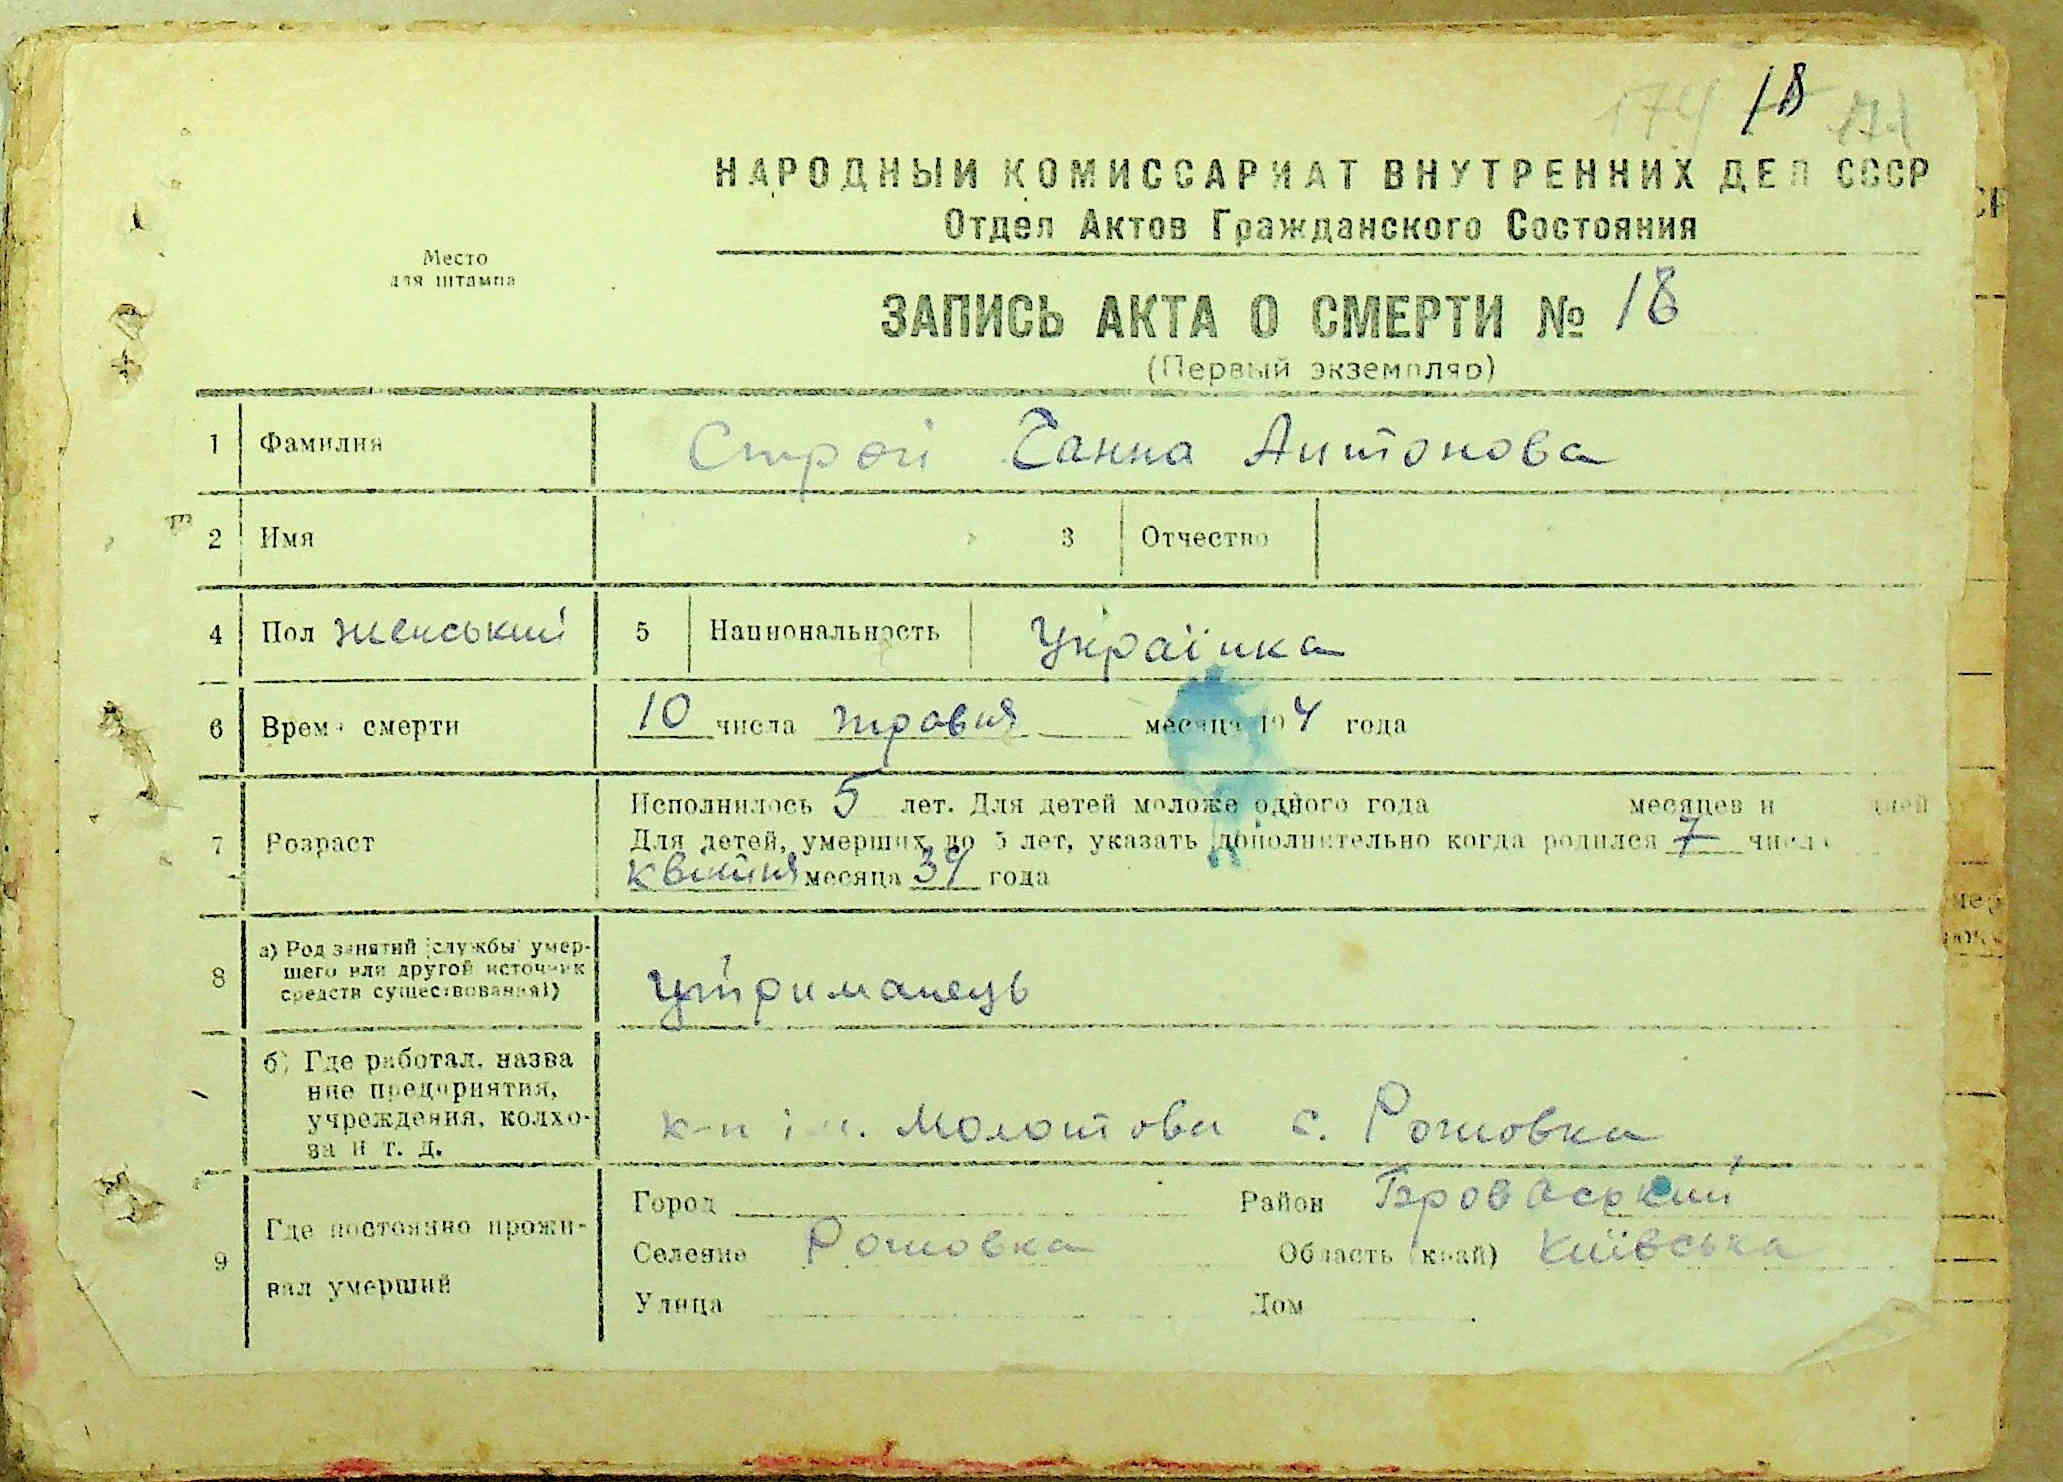 18
НАРОДНЫЙ КОМИССАРИАТ ВНУТРЕННИХ ДЕЛ СССР
Отдел Актов Гражданского Состояния
Место
для штампа
ЗАПИСЬ АКТА О СМЕРТИ № 18
(Первый экземпляр)
1 Фамилия Строй Ганна Антонова
2 Имя 3 Отчество
4 Пол женський 5 Национальность Українка
6 Время смерти 10 числа травня месяца 194 4 года
7 Возраст Исполнилось 5 лет. Для детей моложе одного года месяцев и дней
Для детей, умерших до 5 лет, указать дополнительно когда родился 7 числа
квітня месяца 39 года
8 а) Род занятий (службы умер-
шего или другой источник
средств существования1)
Утриманець
б) Где работал, назва
ние предприятия,
учреждения, колхо-
за и т. д.
к-п ім. Молотова с. Рожовка
9 Где постоянно прожи-
вал умерший
Город Район Броварский
Селение Рожовка Область (край) Київська
Улица Дом